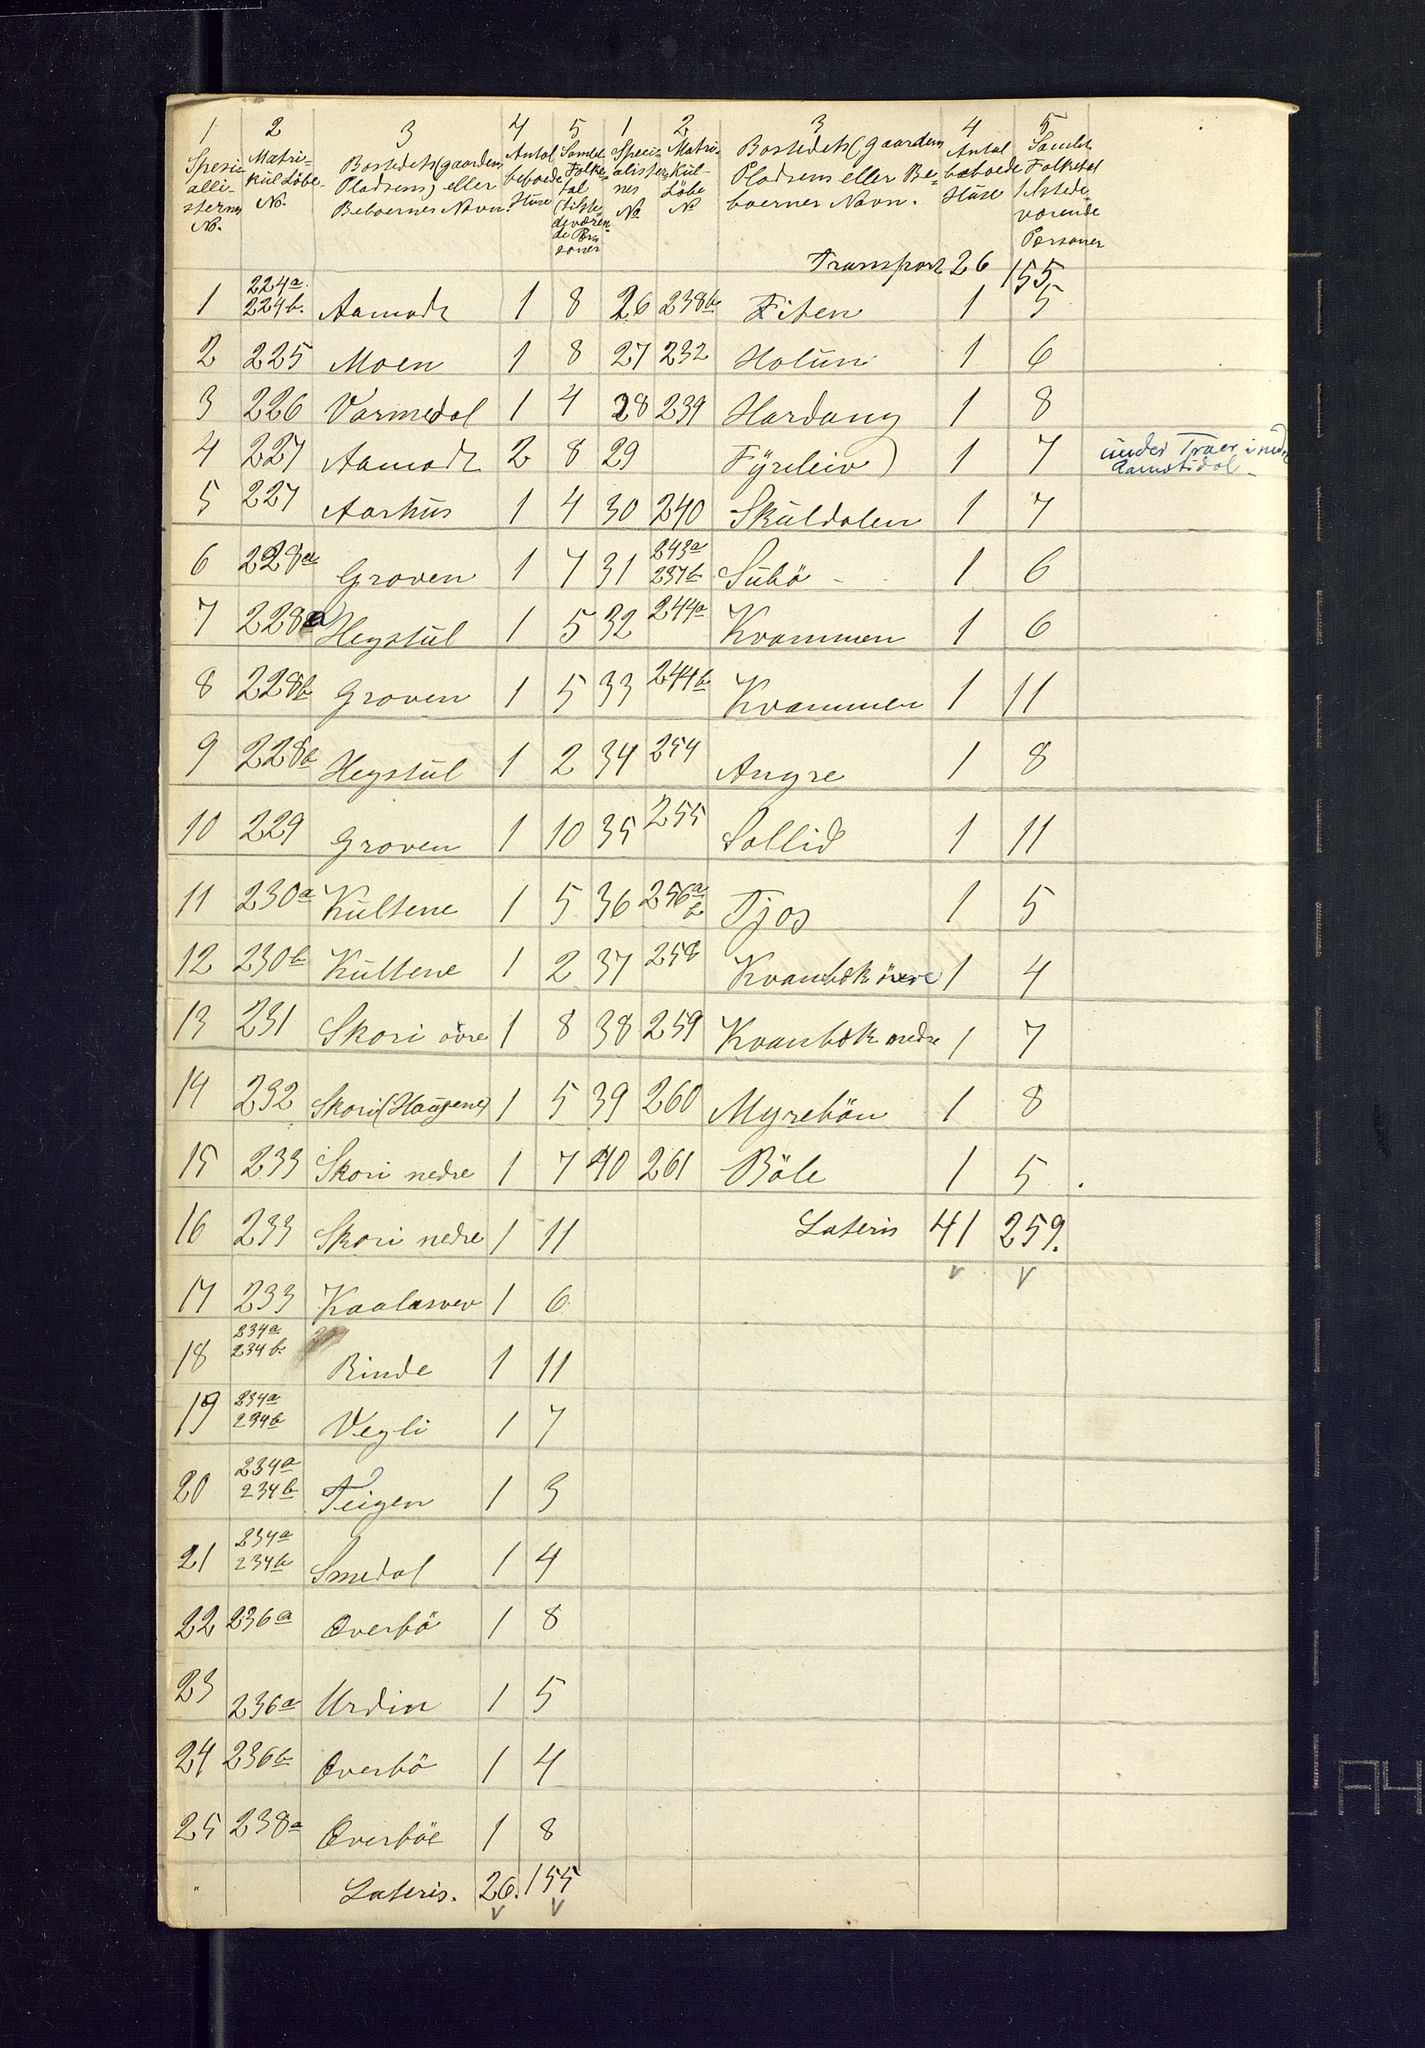 1 2 3 4 5 1 2 3 4 5
Matri-
kül Löbe
No.
Bostedets (gaardens
Pladsens) eller
Beboernes Navn.
Antal
beboede
Huse
Samlet
Folke-
tal
Matri-
kül-
Löbe
No
Bostedets (gaardens
Pladsens eller Be-
boernes Navn.
Antal
beboede
Huse
Samlet
Folketal
værende
Personer
Transport 26 155
1 224a 224b. Aamodt 1 8 26 238b Fiten 1 5
2 225 Moen 1 8 27 232 Holün 1 6
3 226 Varmedal 1 4 28 239 Hardang 1 8
4 227 Aamodt 2 8 29 Fyrileiv 1 7 ünder
5 227 Aarhüs 1 4 30 240 Sküldalen 1 7
6 228a Groven 1 7 31 243a 237b Sübö 1 6
7 228a Heystül 1 5 32 244a Kvammen 1 6
8 228b Groven 1 5 33 244b Kvammen 1 11
9 228b Heystül 1 2 34 254 Angre 1 8
10 229 Groven 1 10 35 255 Sollid 1 11
11 230a Kültene 1 5 36 256a b Tjos 1 5
12 230b Kültene 1 2 37 258 Kvanbæk övre 1 4
13 231 Skori övre 1 8 38 259 Kvanbæk nedre 1 7
14 232 Skori (Haügene) 1 5 39 260 Myrebön 1 8
15 233 Skori nedre 1 7 40 261 Böle 1 5
16 233 Skori nedre 1 11 Lateris 41 259.
17 233 Kaalasvev 1 6
18 234a 234b. Rinde 1 11
19 234a 234b Vegli 1 7
20 234a 234b Teigen 1 3
21 234a 234b Smedal 1 4
22 236a Overbö 1 8
23 236a Urdin 1 5
24 236b Overbö 1 4
25 238a Overböe 1 8
Lateris. 26. 155